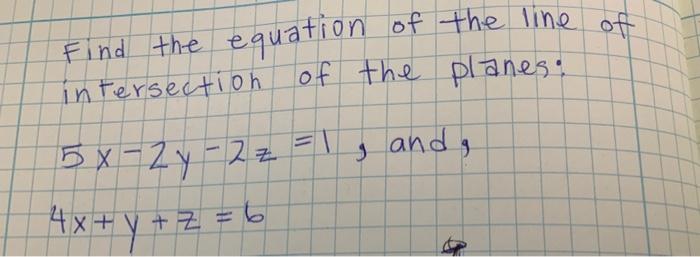 Find the equation of the line of
intersection of the planes:
5x-2y-2z=1, and,
4x+y+z=6